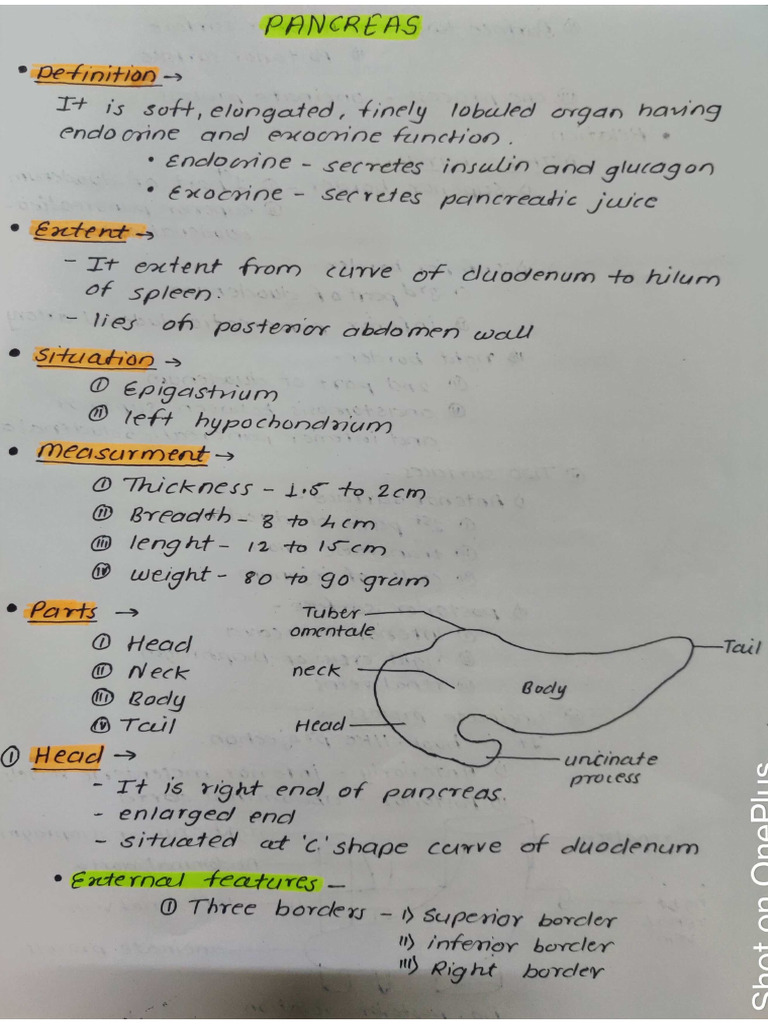 PANCREAS
• Definition →
It is soft, elongated, finely lobuled organ having
endocrine and exocrine function.
• Endocrine - secretes insulin and glucagon
• Exocrine - secretes pancreatic juice
• Extent →
- It extent from curve of duodenum to hilum
of spleen.
- lies on posterior abdomen wall
• Situation →
① Epigastrium
② left hypochondrium
• Measurment →
ⓘ Thickness - 1.5 to 2cm
ⓘⓘ Breadth - 3 to 4cm
ⓘⓘⓘ lenght - 12 to 15cm
ⓘⓥ weight - 80 to 90 gram
• Parts →
ⓘ Head
ⓘⓘ Neck
ⓘⓘⓘ Body
ⓘⓥ Tail
Tuber
omentale
neck
Head
Body
Tail
uncinate
process
① Head →
- It is right end of pancreas.
- enlarged end
- situated at 'C' shape curve of duodenum
• External features -
① Three borders - i) Superior border
ii) inferior border
iii) Right border
Shot on OnePlus